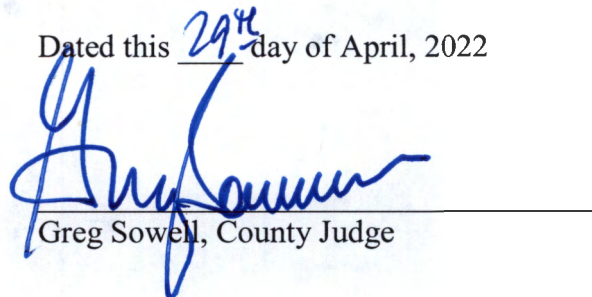 Dated this 29th day of April, 2022
Greg Sowell, County Judge